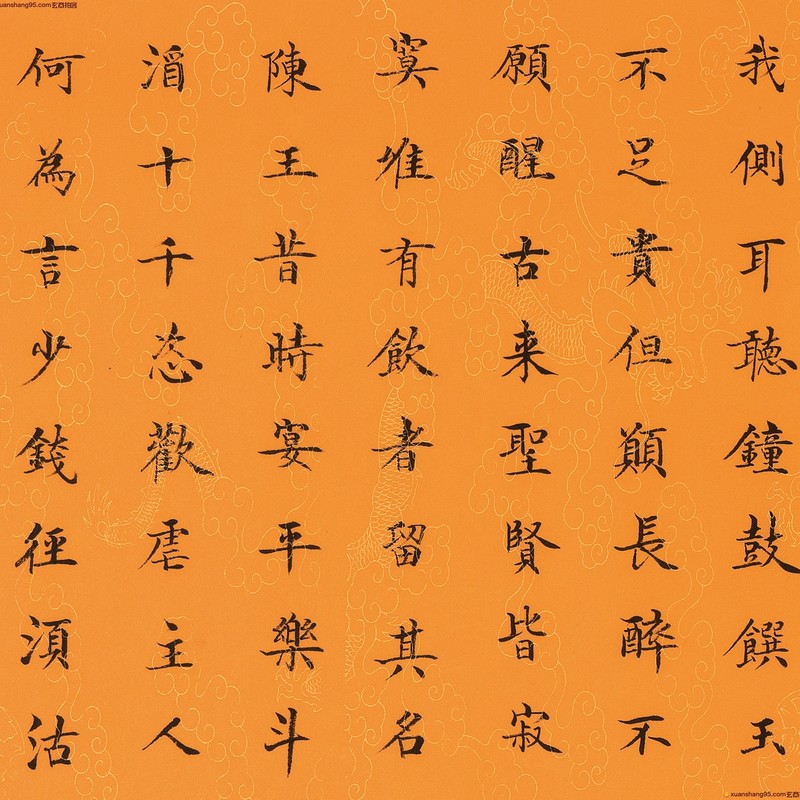 uanshang95.com
我側耳聽鐘鼓饌玉
不足貴但顚長醉不
願醒古来聖賢皆寂
寞惟有飲者留其名
陳王昔時宴平樂斗
酒十千恣歡虐主人
何為言少錢徑湏沽
xuanshang95.com